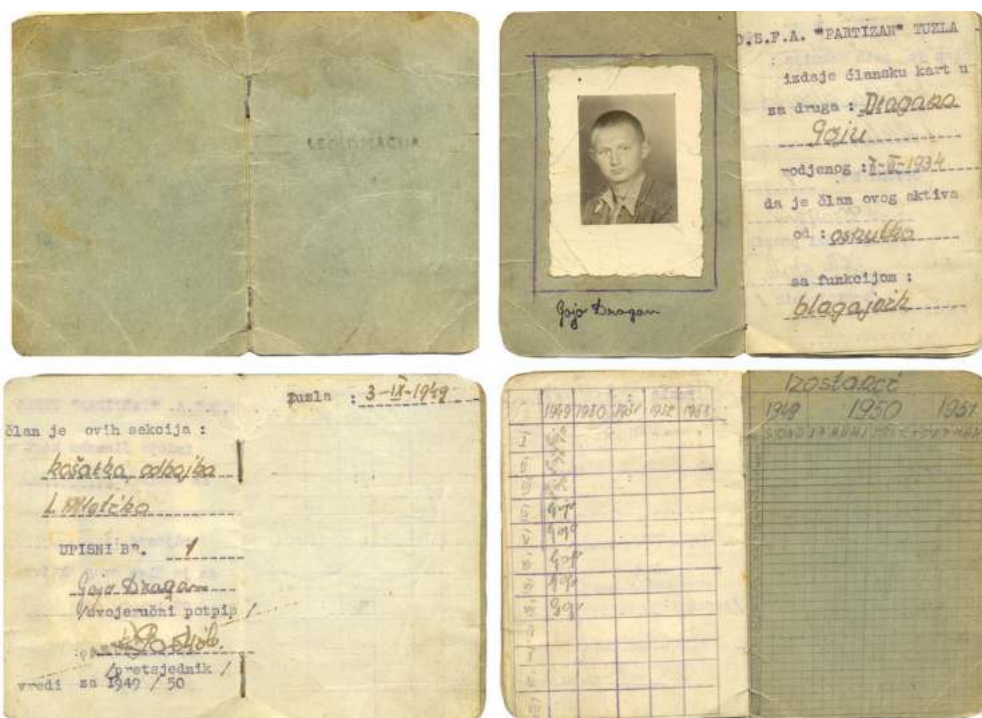 LEGITIMACIJA
D.S.F.A. "PARTIZAN" TUZLA
izdaje člansku kart u
za druga : Dragana
Goju
rodjenog : 7-II-1934
da je član ovog aktiva
od : osnutka
sa funkcijom :
blagajnik
Gojo Dragan
član je ovih sekcija :
košarka, odbojka
i Atletika
UPISNI BR. 1
Gojo Dragan
/svojeručni potpis /
/pretsjednik /
vredi za 1949 / 50
Tuzla : 3-IX-1949
1949 1950 1951 1952 1953
Gojo
Gojo
Gojo
Gojo
Gojo
Izostanci
1949 1950 1951